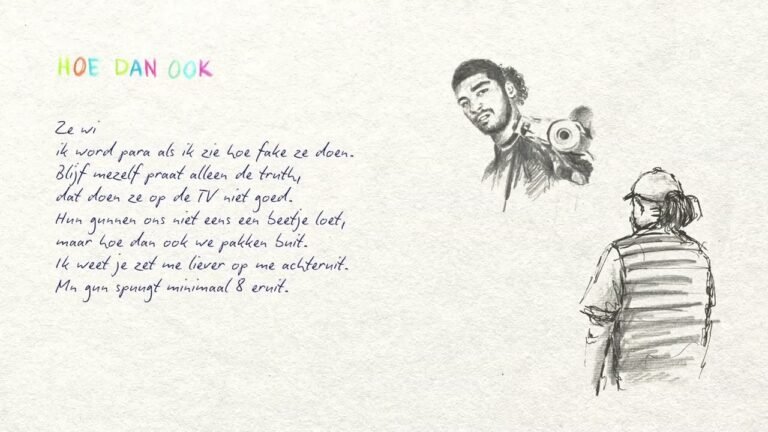 HOE DAN OOK
Ze wi
ik word para als ik zie hoe fake ze doen.
Blijf mezelf praat alleen de truth,
dat doen ze op de TV niet goed.
Hun gunnen ons niet eens een beetje loet,
maar hoe dan ook we pakken buit.
Ik weet je zet me liever op me achteruit.
Mn gun spuugt minimaal 8 eruit.